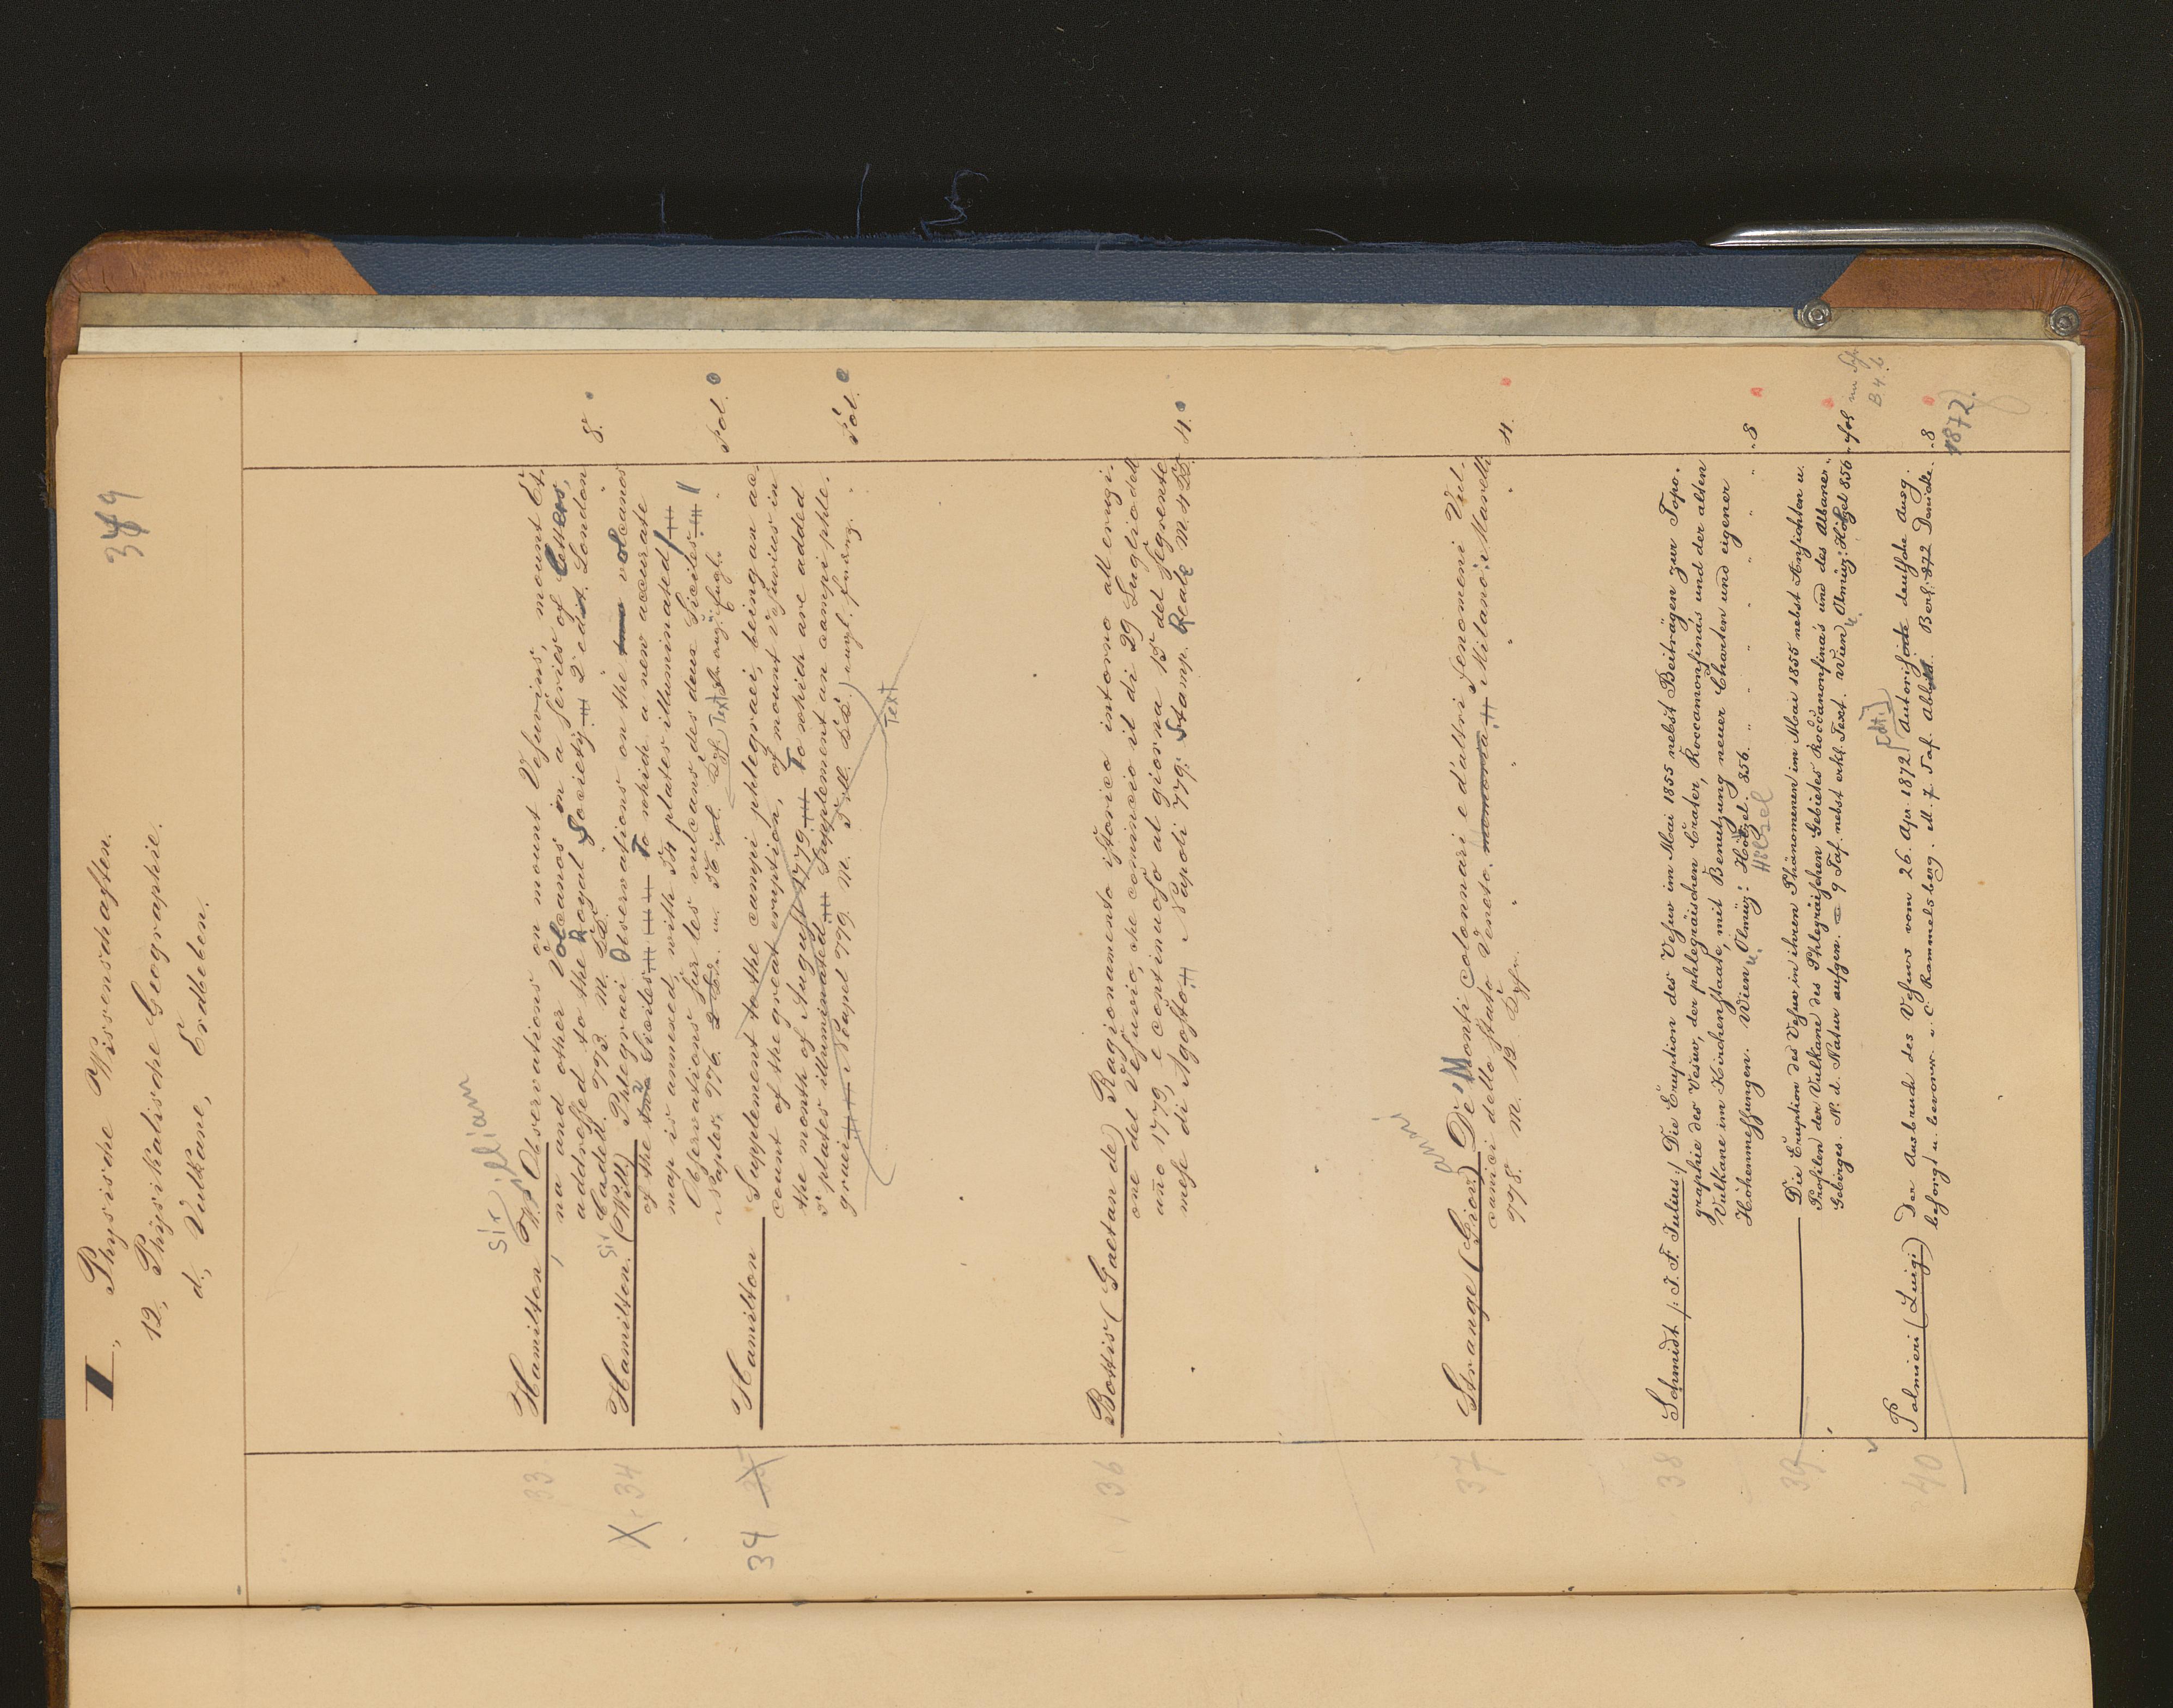 I., Physische Wissenschaften.
349
12, Physikalische Geographie.
d., Vulkane, Erdbeben.
Sir William
33. Hamilton (W.) Observations on mount Vesuvius, mount Et-
na and other Volcanos in a series of Letters,
addressed to the Royal Society. 2 edit. London
Cadell. 773. M. 8. 
X 34 Hamilton. (Will) Phlegraei Observations on the two volcanos
of the two Sicilies. To which a new accurate
map is annexed, with 54 plates illuminated /
Observations sur les vulcans des deux Siciles.
Naples. 776. Text Fol.
34 35 Hamilton Supplement to the campi phlegraei, being an ac
count of the great eruption, of mount Vesuvius in
the month of August 1779. To which are added
5 plates illuminated. Supplement au campi phle-
graei. Napel 779. M. 5 Fol.
Text
36 Bottis (Gaetan de) Ragionamento istorico intorno all' eruzi-
one del Vesuvio, che cominciò il di 29 Luglio dell
año 1779, e continuoso al giorna 15 del segvente
mese di Agosto. Napoli 779. Stamp. Reale M. 4 4.
37 Strange (Giov.) De' Monti colonnari e d'altri fenomeni Vul-
anni
canici dello stato Veneto. memoria. Milano: Marelli
778. M. 12 4.
38 Schmidt /: J. F. Julius :/ Die Eruption des Vesuv im Mai 1855 nebst Beiträgen zur Topo-
graphie des Vesuv, der phlegräischen Crater, Roccamonfina's und der alten
Vulkane im Kirchenstaate, mit Benutzung neuer Charten und eigener
Höhenmessungen. Wien u. Olmüz: Hölzel. 856. 8
Hölzel
39 Die Eruption des Vesuv in ihren Phänomenen im Mai 1855 nebst Ansichten u.
Profilen der Vulkane des Phlegräischen Gebietes Roccamonfina's und des Albaner-
Gebirges. N. d. Natur aufgen. 9 Taf. nebst erkl. Text. Wien u. Olmüz: Hölzel 856. fol
B 4. b
Edt.
40 Palmieri (Luigi) Der Ausbruch des Vesuvs vom 26. Apr. 1872. Autorisirte deutsche Ausg
besorgt u. bevorw. v. C. Rammelsberg. M. 7. Taf. Abbild. Berl. 872 Denicke. 8
1872.